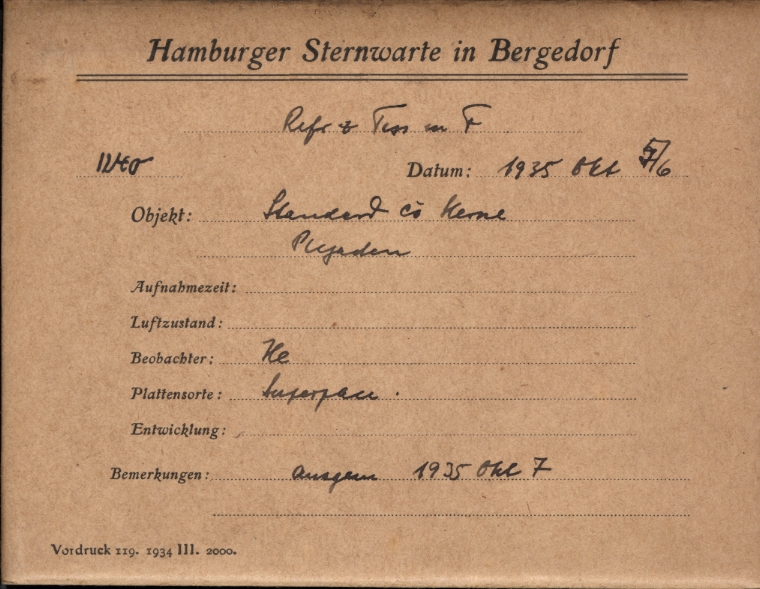 Hamburger Sternwarte in Bergedorf
Refr Tess in F
Datum: 1935 Okt 5/6
Objekt: Standard
Plejaden
Aufnahmezeit:
Luftzustand:
Beobachter: He
Plattensorte: Superpan.
Entwicklung:
Bemerkungen: ausgem 1935 Okt 7
Vordruck 119. 1934 III. 2000.